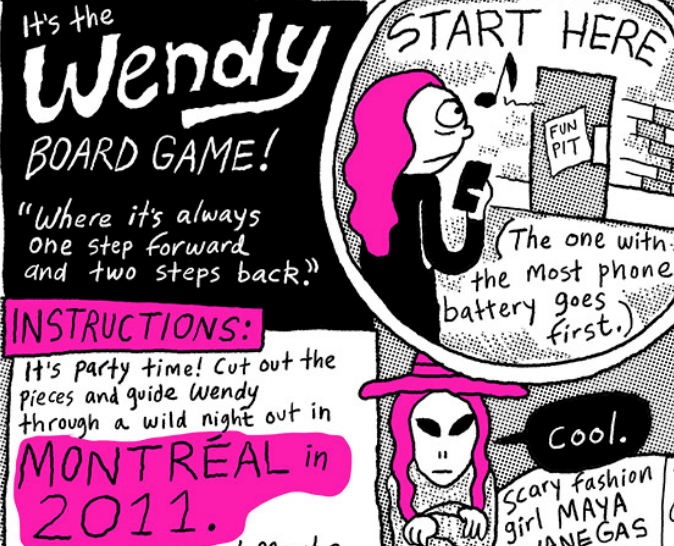 It's the
Wendy
BOARD GAME!
"Where it's always
one step forward
and two steps back."
START HERE
FUN
PIT
(The one with
the most phone
battery goes
first.)
INSTRUCTIONS:
It's party time! Cut out the
pieces and guide Wendy
through a wild night out in
MONTRÉAL in
2011.
Cool.
Scary fashion
girl MAYA
VANEGAS